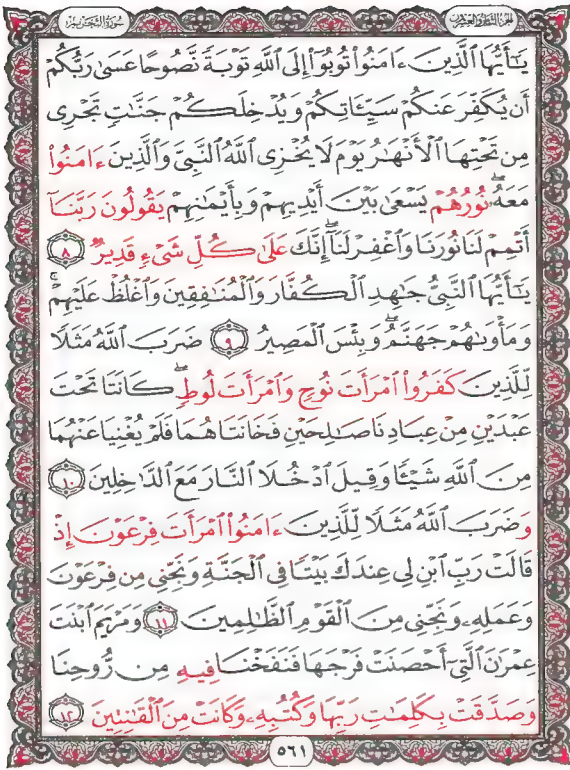 الجزء الثامن والعشرون
سورة التحريم
يَٰٓأَيُّهَا ٱلَّذِينَ ءَامَنُوا۟ تُوبُوٓا۟ إِلَى ٱللَّهِ تَوْبَةً نَّصُوحًا عَسَىٰ رَبُّكُمْ
أَن يُكَفِّرَ عَنكُمْ سَيِّـَٔاتِكُمْ وَيُدْخِلَكُمْ جَنَّٰتٍ تَجْرِى
مِن تَحْتِهَا ٱلْأَنْهَٰرُ يَوْمَ لَا يُخْزِى ٱللَّهُ ٱلنَّبِىَّ وَٱلَّذِينَ ءَامَنُوا۟
مَعَهُۥۖ نُورُهُمْ يَسْعَىٰ بَيْنَ أَيْدِيهِمْ وَبِأَيْمَٰنِهِمْ يَقُولُونَ رَبَّنَآ
أَتْمِمْ لَنَا نُورَنَا وَٱغْفِرْ لَنَآۖ إِنَّكَ عَلَىٰ كُلِّ شَىْءٍ قَدِيرٌ ٨
يَٰٓأَيُّهَا ٱلنَّبِىُّ جَٰهِدِ ٱلْكُفَّارَ وَٱلْمُنَٰفِقِينَ وَٱغْلُظْ عَلَيْهِمْۚ
وَمَأْوَىٰهُمْ جَهَنَّمُۖ وَبِئْسَ ٱلْمَصِيرُ ٩ ضَرَبَ ٱللَّهُ مَثَلًا
لِّلَّذِينَ كَفَرُوا۟ ٱمْرَأَتَ نُوحٍ وَٱمْرَأَتَ لُوطٍۖ كَانَتَا تَحْتَ
عَبْدَيْنِ مِنْ عِبَادِنَا صَٰلِحَيْنِ فَخَانَتَاهُمَا فَلَمْ يُغْنِيَا عَنْهُمَا
مِنَ ٱللَّهِ شَيْـًٔا وَقِيلَ ٱدْخُلَا ٱلنَّارَ مَعَ ٱلدَّٰخِلِينَ ١٠
وَضَرَبَ ٱللَّهُ مَثَلًا لِّلَّذِينَ ءَامَنُوا۟ ٱمْرَأَتَ فِرْعَوْنَ إِذْ
قَالَتْ رَبِّ ٱبْنِ لِى عِندَكَ بَيْتًا فِى ٱلْجَنَّةِ وَنَجِّنِى مِن فِرْعَوْنَ
وَعَمَلِهِۦ وَنَجِّنِى مِنَ ٱلْقَوْمِ ٱلظَّٰلِمِينَ ١١ وَمَرْيَمَ ٱبْنَتَ
عِمْرَٰنَ ٱلَّتِىٓ أَحْصَنَتْ فَرْجَهَا فَنَفَخْنَا فِيهِ مِن رُّوحِنَا
وَصَدَّقَتْ بِكَلِمَٰتِ رَبِّهَا وَكُتُبِهِۦ وَكَانَتْ مِنَ ٱلْقَٰنِتِينَ ١٢
٥٦١